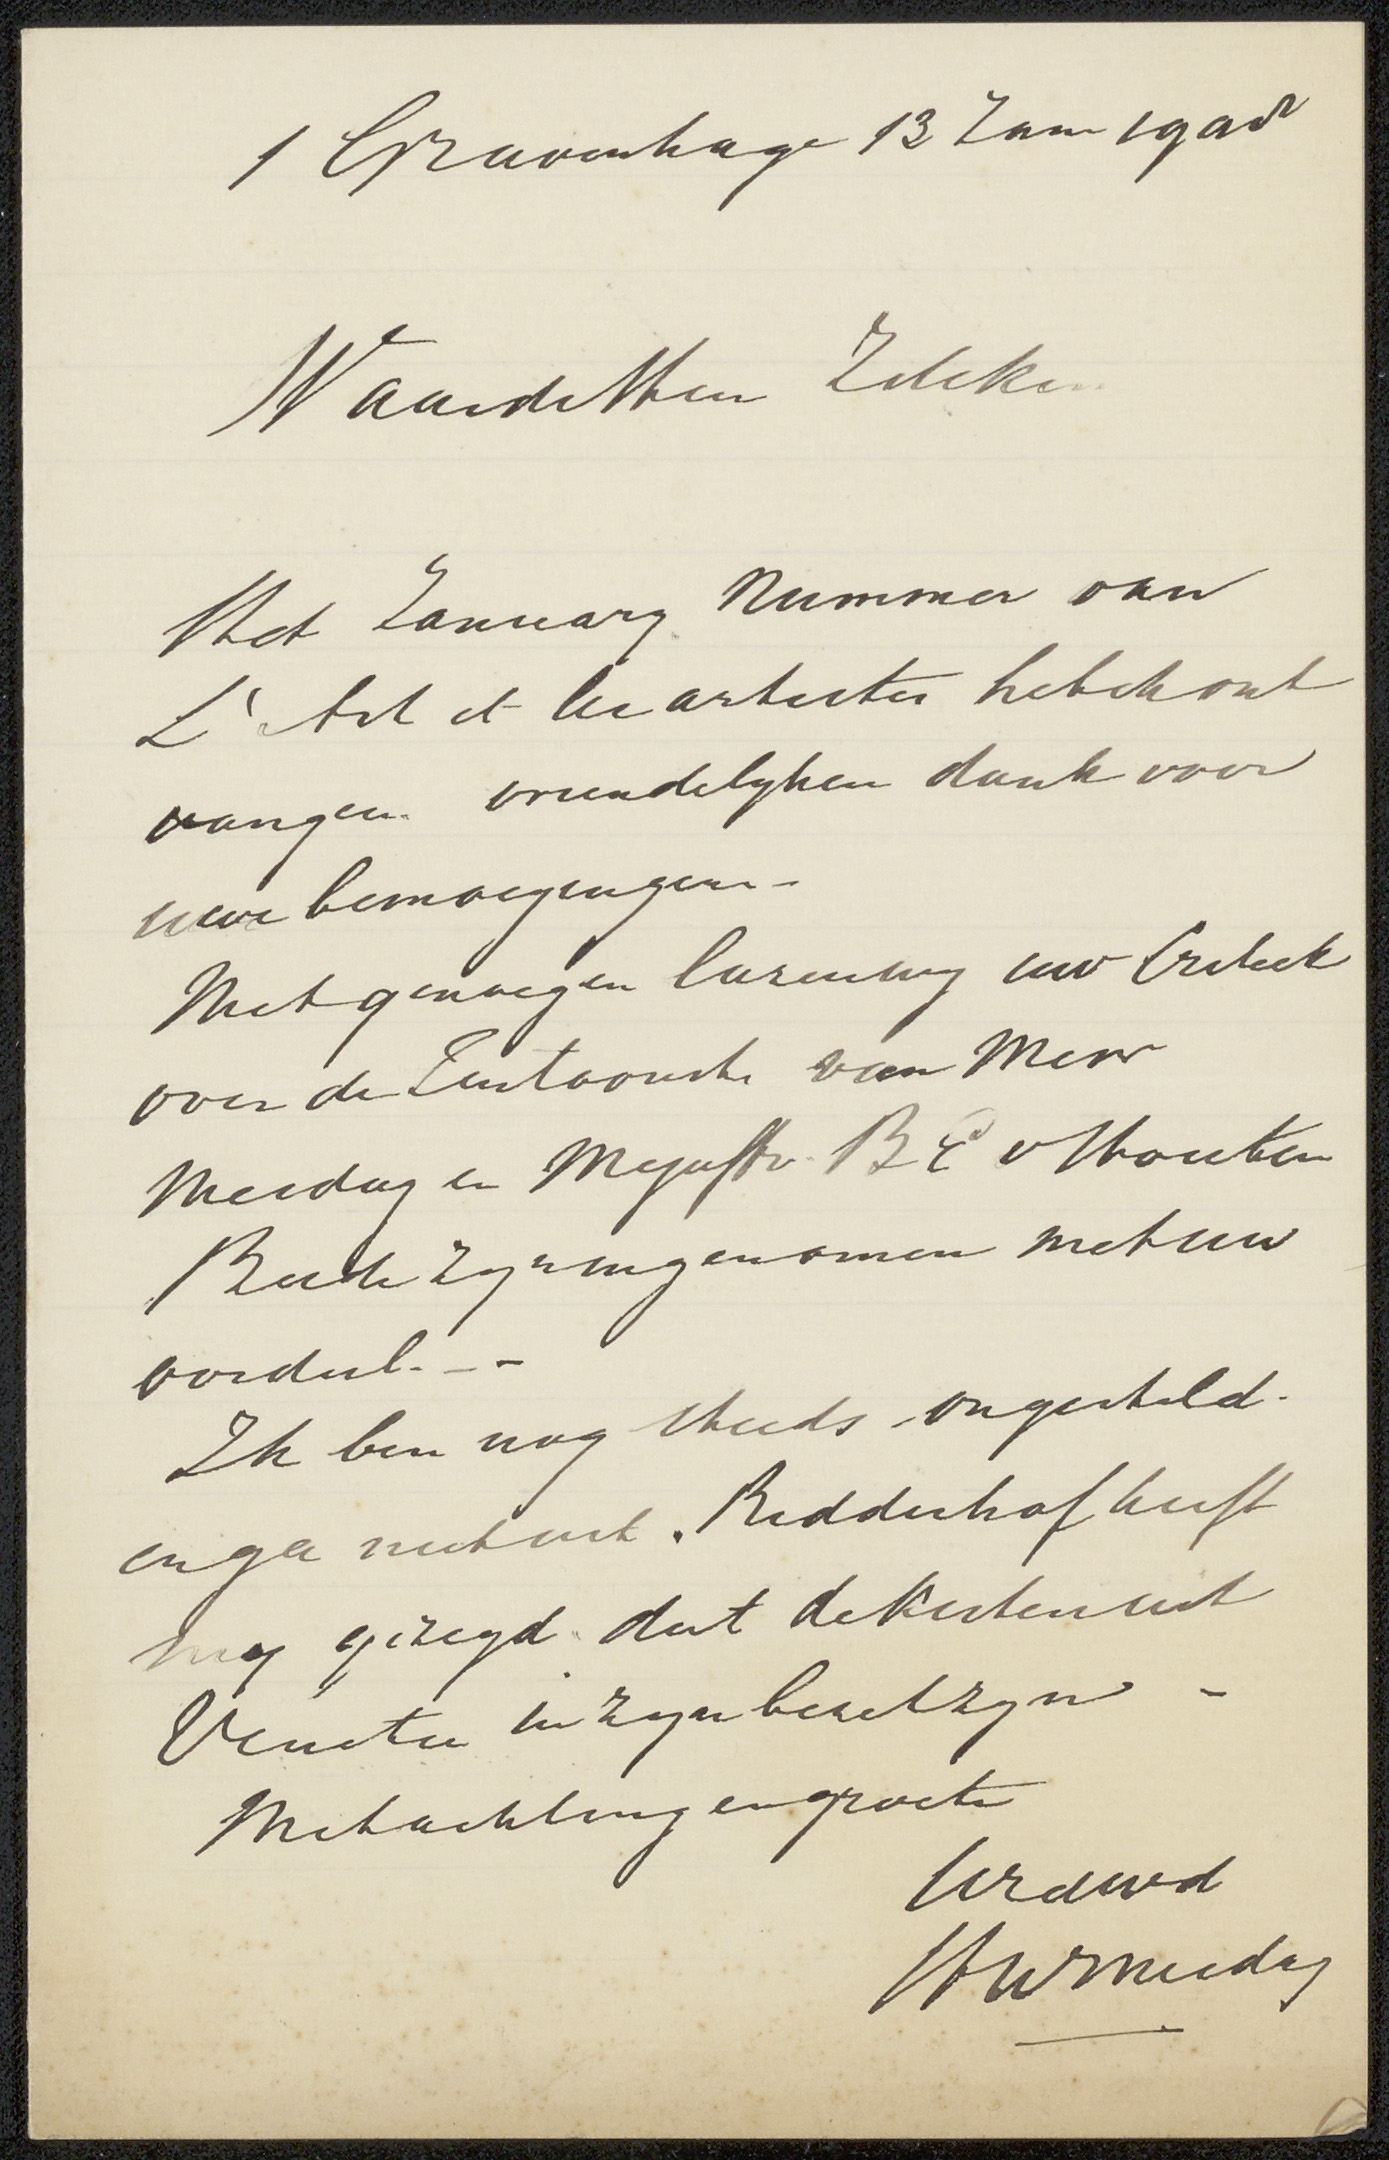 's Gravenhage 13 Jan 190
Waarde Heer Zilcken
Het January Nummer van
L'Art et les artistes heb ik ont
vangen. vriendelyken dank voor
uwe bemoeyingen -
Met genoegen lazen wy uw Critiek
over de Tentoonst. van Mevr
Mesdag en Mejuffr. B E v Houten
Beide zyn ingenomen met uw
oordeel. - -
Ik ben nog steeds ongesteld.
en ga niet uit. Ridderhof heeft
my gezegd dat de kisten uit
Venetie in zyn bezit zyn -
Met achting en groete
Uw dwd
HW Mesdag